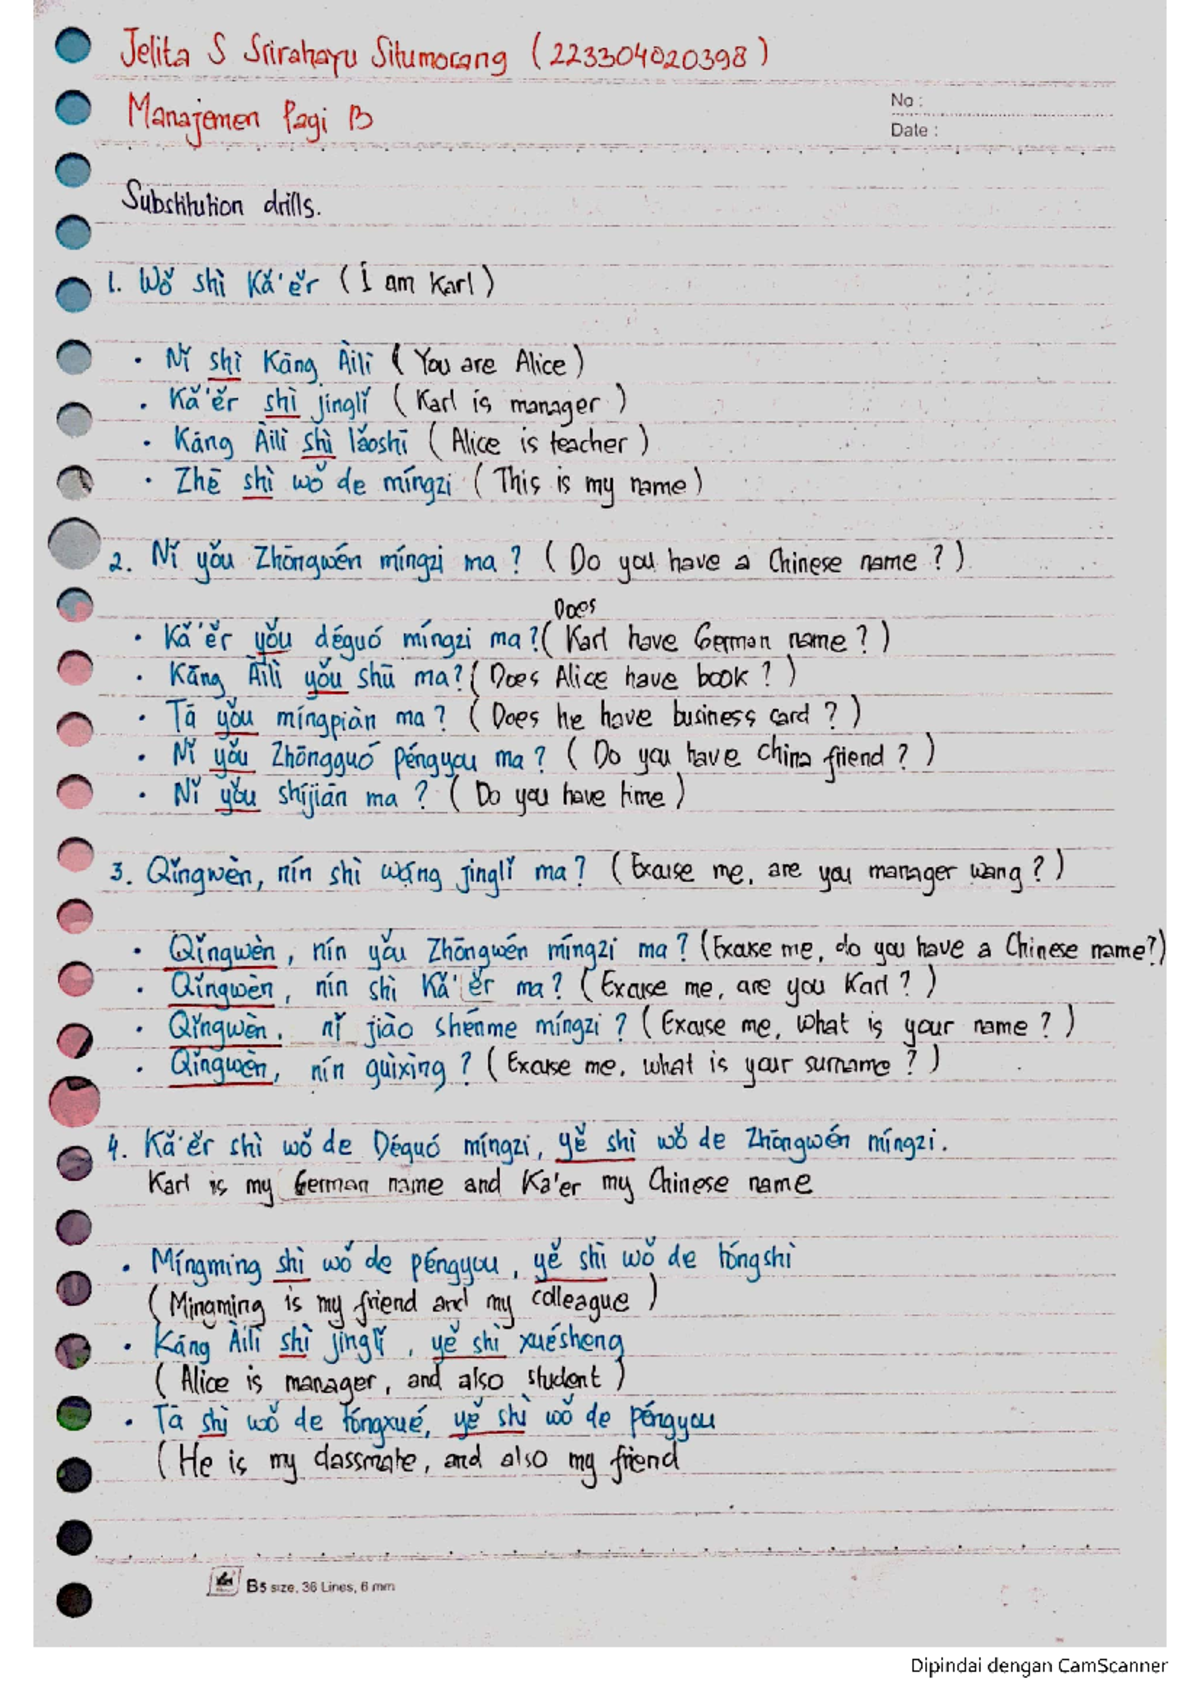 Jelita S Srirahayu Situmorang (223304020398)
Manajemen Pagi B
No :
Date :
Substitution drills.
1. Wǒ shì Kǎ'ěr (I am Karl)
• Nǐ shì Kāng Àilì (You are Alice)
• Kǎ'ěr shì jīnglǐ (Karl is manager)
• Kāng Àilì shì lǎoshī (Alice is teacher)
• Zhē shì wǒ de míngzi (This is my name)
2. Nǐ yǒu Zhōngwén míngzi ma? (Do you have a Chinese name?)
Does
• Kǎ'ěr yǒu déguó míngzi ma? (Karl have German name?)
• Kāng Àilì yǒu shū ma? (Does Alice have book?)
• Tā yǒu míngpiàn ma? (Does he have business card?)
• Nǐ yǒu Zhōngguó péngyou ma? (Do you have china friend?)
• Nǐ yǒu shíjiān ma? (Do you have time)
3. Qǐngwèn, nín shì wáng jīnglǐ ma? (Excuse me, are you manager wang?)
• Qǐngwèn, nín yǒu Zhōngwén míngzi ma? (Excuse me, do you have a Chinese name?)
• Qǐngwèn, nín shì Kǎ'ěr ma? (Excuse me, are you Karl?)
• Qǐngwèn, nǐ jiào shénme míngzi? (Excuse me, what is your name?)
• Qǐngwèn, nín guìxìng? (Excuse me, what is your surname?)
4. Kǎ'ěr shì wǒ de Déguó míngzi, yě shì wǒ de Zhōngwén míngzi.
Karl is my German name and Ka'er my Chinese name
• Míngming shì wǒ de péngyou, yě shì wǒ de tóngshì
(Mingming is my friend and my colleague)
• Kāng Àilì shì jīnglǐ, yě shì xuésheng
(Alice is manager, and also student)
• Tā shì wǒ de tóngxué, yě shì wǒ de péngyou
(He is my classmate, and also my friend
B5 size, 36 Lines, 6 mm
Dipindai dengan CamScanner